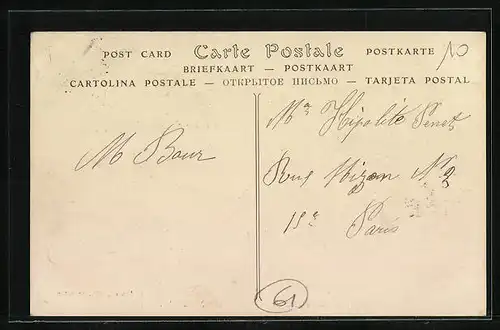 POST CARD Carte Postale POSTKARTE
BRIEFKAART — POSTKAART
CARTOLINA POSTALE — ОТКРЫТОЕ ПИСЬМО — TARJETA POSTAL
10
Mᵃ Hipolite
M Bour
Rue Mizon Nº 2
15ᵉ Paris
61